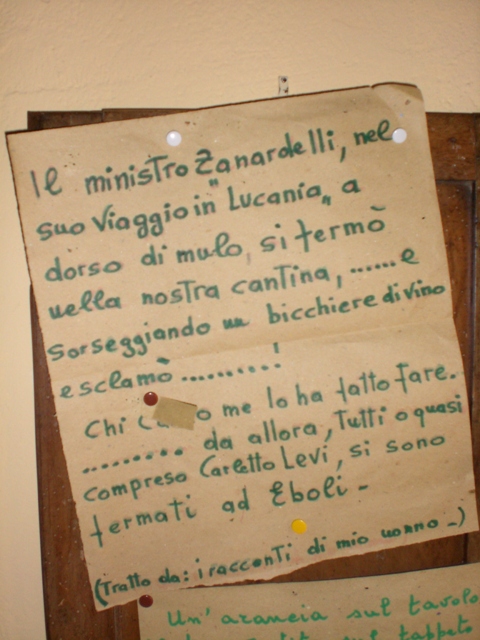 Il ministro Zanardelli, nel
suo viaggio in "Lucania" a
dorso di mulo, si fermò
nella nostra cantina, ...... e
sorseggiando un bicchiere di vino
esclamò ..........!
Chi me lo ha fatto fare.
......... da allora, Tutti o quasi
compreso Carletto Levi, si sono
fermati ad Eboli -
(Tratto da: i racconti di mio nonno -)
Un'arancia sul tavolo
tappeto